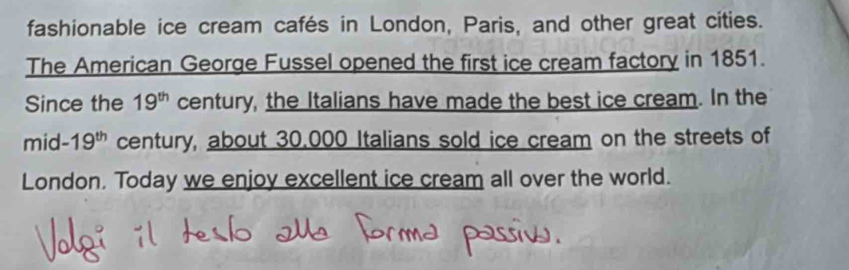 fashionable ice cream cafés in London, Paris, and other great cities.
The American George Fussel opened the first ice cream factory in 1851.
Since the 19th century, the Italians have made the best ice cream. In the
mid-19th century, about 30.000 Italians sold ice cream on the streets of
London. Today we enjoy excellent ice cream all over the world.
Volgi il testo alla forma passiva.